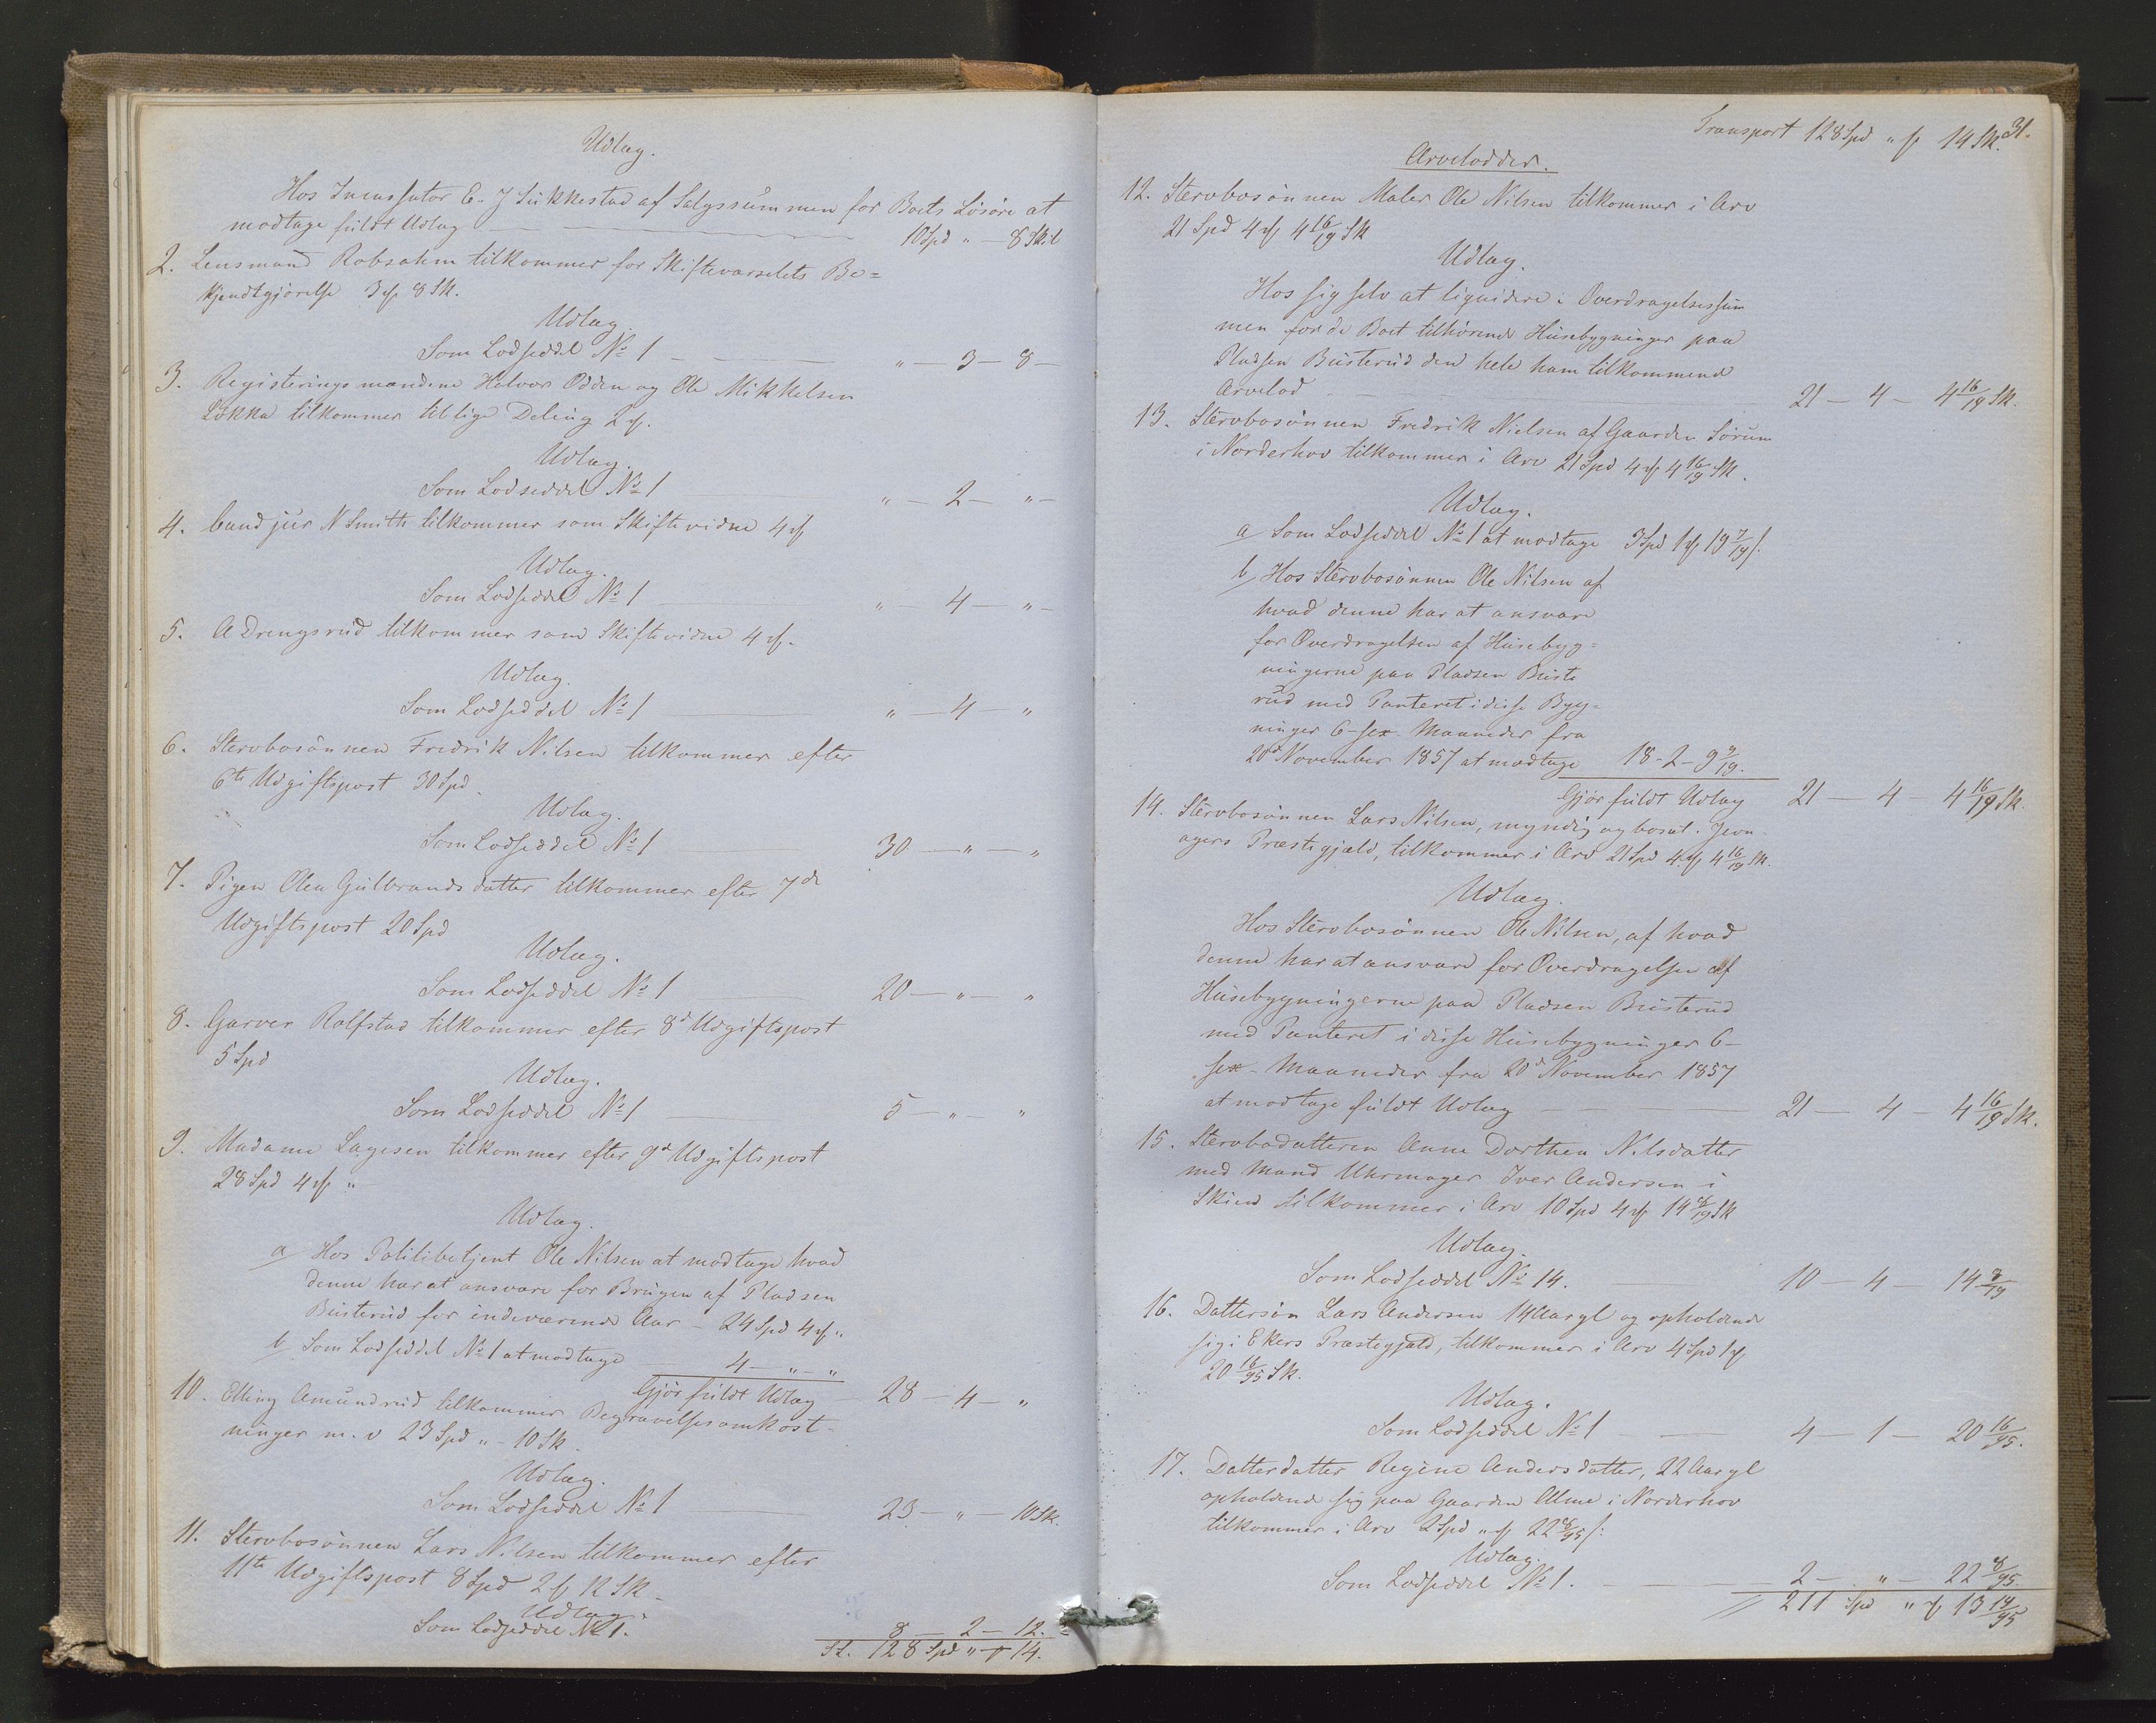 Udlæg.
Hos Incassator E. J Sukkestad af Salgssummen for Boets Løsøre at
modtage fuldt Udlæg — 10 Spd „ — 8 Skil
2. Lensmand Robsahm tilkommer for Skiftevarselets Be=
kjendtgjørelse 3 ẜ 8 Sk.
Udlæg.
Som Lodseddel No 1 — „ — 3 — 8 —
3. Registeringsmændene Halvor Odden og Ole Mikkelsen
Løkka tilkommer tillige Deling 2 ẜ.
Udlæg.
Som Lodseddel No 1 „ — 2 — „ —
4. Cand jur N Smith tilkommer som Skiftevidne 4 ẜ
Udlæg.
Som Lodseddel No 1 — „ — 4 — „ —
5. A Drengsrud tilkommer som Skiftevidne 4 ẜ.
Udlæg.
Som Lodseddel No 1 — „ — 4 — „
6. Stervbosønnen Fredrik Nilsen tilkommer efter
6te Udgiftspost 30 Spd.
Udlæg.
Som Lodseddel No 1 — 30 — „ — „
7. Pigen Olea Gulbrandsdatter tilkommer efter 7de
Udgiftspost 20 Spd
Udlæg.
Som Lodseddel No 1 — 20 — „ — „
8. Garver Rolfstad tilkommer efter 8d Udgiftspost
5 Spd
Udlæg.
Som Lodseddel No 1 — 5 — „ „
9. Madame Lagesen tilkommer efter 9d Udgiftspost
28 Spd 4 ẜ „
Udlæg.
a/ Hos Politibetjent Ole Nilsen at modtage hvad
denne har at ansvare for Brugen af Pladsen
Busterud for indeværende Aar — 24 Spd 4 ẜ „
b/ Som Lodseddel No 1 at modtage — 4 — „ — „
Gjør fuldt Udlæg — 28 — 4 — „
10. Elling Amundrud tilkommer Begravelsesomkost-
ninger m. v 23 Spd „ — 10 Sk.
Udlæg.
Som Lodseddel No 1 — 23 — „ — 10 Sk.
11. Stervbosønnen Lars Nilsen tilkommer efter
11te Udgiftspost 8 Spd 2 ẜ 12 Sk —
Udlæg.
Som Lodseddel No 1. 8 — 2 — 12.
St. 128 Spd „ ẜ 14.
31.
Transport 128 Spd „ ẜ 14 Sk.
Arvelodder.
12. Stervbosønnen Maler Ole Nilsen tilkommer i Arv
21 Spd 4 ẜ 4 16/19 Sk
Udlæg.
Hos sig selv at liquidere i Overdragelsessum
men for de Boet tilhørende Husebygninger paa
Pladsen Busterud den hele ham tilkommend
Arvelod — 21 — 4 — 4 16/19 Sk.
13. Stervbosønnen Fredrik Nielsen af Gaarden Sørum
i Norderhov tilkommer i Arv 21 Spd 4 ẜ 4 16/19 Sk.
Udlæg.
a/ Som Lodseddel No 1 at modtage 3 Spd 1 ẜ 19 7/19 ſ.
b/ Hos Stervbosønnen Ole Nilsen af
hvad denne har at ansvare
for Overdragelsen af Husebyg=
ningerne paa Pladsen Buste
rud med Panteret i disse Byg=
ninger 6 - sex Maaneder fra
20d November 1857 at modtage 18 - 2 - 9 9/19.
Gjør fuldt Udlæg 21 — 4 — 4 16/19 Sk.
14. Stervbosønnen Lars Nilsen, myndig og bosat i Jevn-
agers Præstegjæld, tilkommer i Arv 21 Spd 4 ẜ 4 16/19 Sk.
Udlæg.
Hos Stervbosønnen Ole Nilsen, af hvad
denne har at ansvare for Overdragelsen af
Husebygningerne paa Pladsen Busterud
med Panteret i disse Husebygninger 6 -
sex - Maaneder fra 20d November 1857
at modtage fuldt Udlæg — 21 — 4 — 4 16/19 Sk.
15. Stervbodatteren Anne Dorthea Nilsdatter
med Mand Uhrmager Iver Andersen i
Skien tilkommer i Arv 10 Spd 4 ẜ 14 8/19 Sk
Udlæg.
Som Lodseddel No 14. — 10 — 4 — 14 8/19
16. Dattersøn Lars Andersen 14 Aar gl og opholdende
sig i Ekers Præstegjæld, tilkommer i Arv 4 Spd 1 ẜ
20 16/95 Sk.
Udlæg.
Som Lodseddel No 1 — 4 — 1 — 20 16/95.
17. Datterdatter Regine Andersdatter, 22 Aar gl
opholdende sig paa Gaarden Alme i Norderhov
tilkommer i Arv 2 Spd „ ẜ 22 8/95 ſ:
Udlæg.
Som Lodseddel No 1. — 2 — „ — 22 8/95.
211 Spd „ ẜ 13 14/95